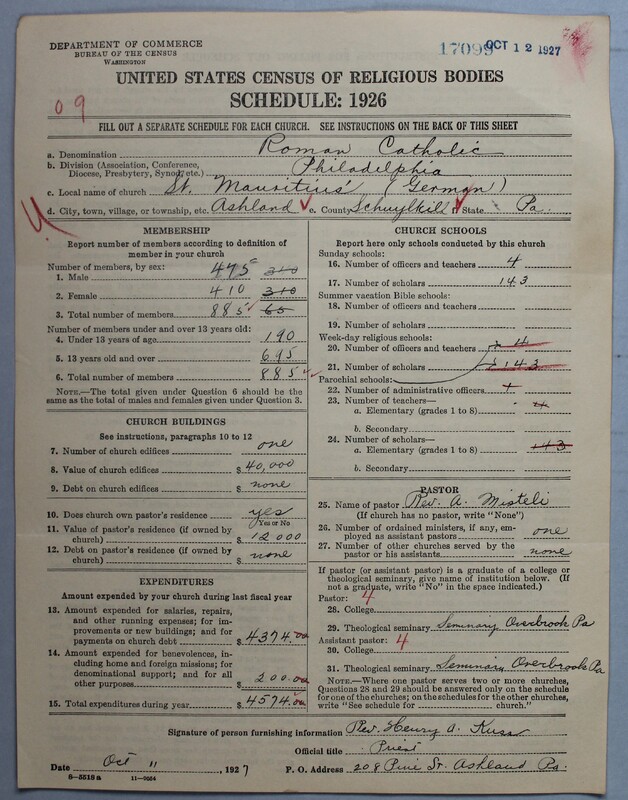 DEPARTMENT OF COMMERCE
BUREAU OF THE CENSUS
WASHINGTON
17099 OCT 12 1927
UNITED STATES CENSUS OF RELIGIOUS BODIES
SCHEDULE: 1926
09
FILL OUT A SEPARATE SCHEDULE FOR EACH CHURCH. SEE INSTRUCTIONS ON THE BACK OF THIS SHEET
a. Denomination Roman Catholic
b. Division (Association, Conference, Diocese, Presbytery, Synod, etc.) Philadelphia
c. Local name of church St. Mauritius' (German)
d. City, town, village, or township, etc. Ashland e. County Schuylkill f. State Pa.
MEMBERSHIP
Report number of members according to definition of
member in your church
Number of members, by sex:
1. Male 475 310
2. Female 410 310
3. Total number of members 885 65
Number of members under and over 13 years old:
4. Under 13 years of age 190
5. 13 years old and over 695
6. Total number of members 885
NOTE.—The total given under Question 6 should be the
same as the total of males and females given under Question 3.
CHURCH BUILDINGS
See instructions, paragraphs 10 to 12
7. Number of church edifices one
8. Value of church edifices $ 40,000
9. Debt on church edifices $ none
10. Does church own pastor's residence yes
Yes or No
11. Value of pastor's residence (if owned by
church) $ 12000
12. Debt on pastor's residence (if owned by
church) $ none
EXPENDITURES
Amount expended by your church during last fiscal year
13. Amount expended for salaries, repairs,
and other running expenses; for im-
provements or new buildings; and for
payments on church debt $ 4374.00
14. Amount expended for benevolences, in-
cluding home and foreign missions; for
denominational support; and for all
other purposes $ 200.00
15. Total expenditures during year $ 4574.00
CHURCH SCHOOLS
Report here only schools conducted by this church
Sunday schools:
16. Number of officers and teachers 4
17. Number of scholars 143
Summer vacation Bible schools:
18. Number of officers and teachers
19. Number of scholars
Week-day religious schools:
20. Number of officers and teachers 4
21. Number of scholars 143
Parochial schools:
22. Number of administrative officers 1
23. Number of teachers—
a. Elementary (grades 1 to 8) 4
b. Secondary
24. Number of scholars—
a. Elementary (grades 1 to 8) 143
b. Secondary
PASTOR
25. Name of pastor Rev. A. Misteli
(If church has no pastor, write "None")
26. Number of ordained ministers, if any, em-
ployed as assistant pastors one
27. Number of other churches served by the
pastor or his assistants none
If pastor (or assistant pastor) is a graduate of a college or
theological seminary, give name of institution below. (If
not a graduate, write "No" in the space indicated.)
Pastor: 4
28. College
29. Theological seminary Seminary Overbrook Pa
Assistant pastor: 4
30. College
31. Theological seminary Seminary Overbrook Pa
NOTE.—Where one pastor serves two or more churches,
Questions 28 and 29 should be answered only on the schedule
for one of the churches; on the schedules for the other churches,
write "See schedule for church."
Signature of person furnishing information Rev. Henry A. Kuss
Official title Priest
Date Oct 11, 1927 P. O. Address 208 Pine St. Ashland Pa.
8—5518a 11—9554